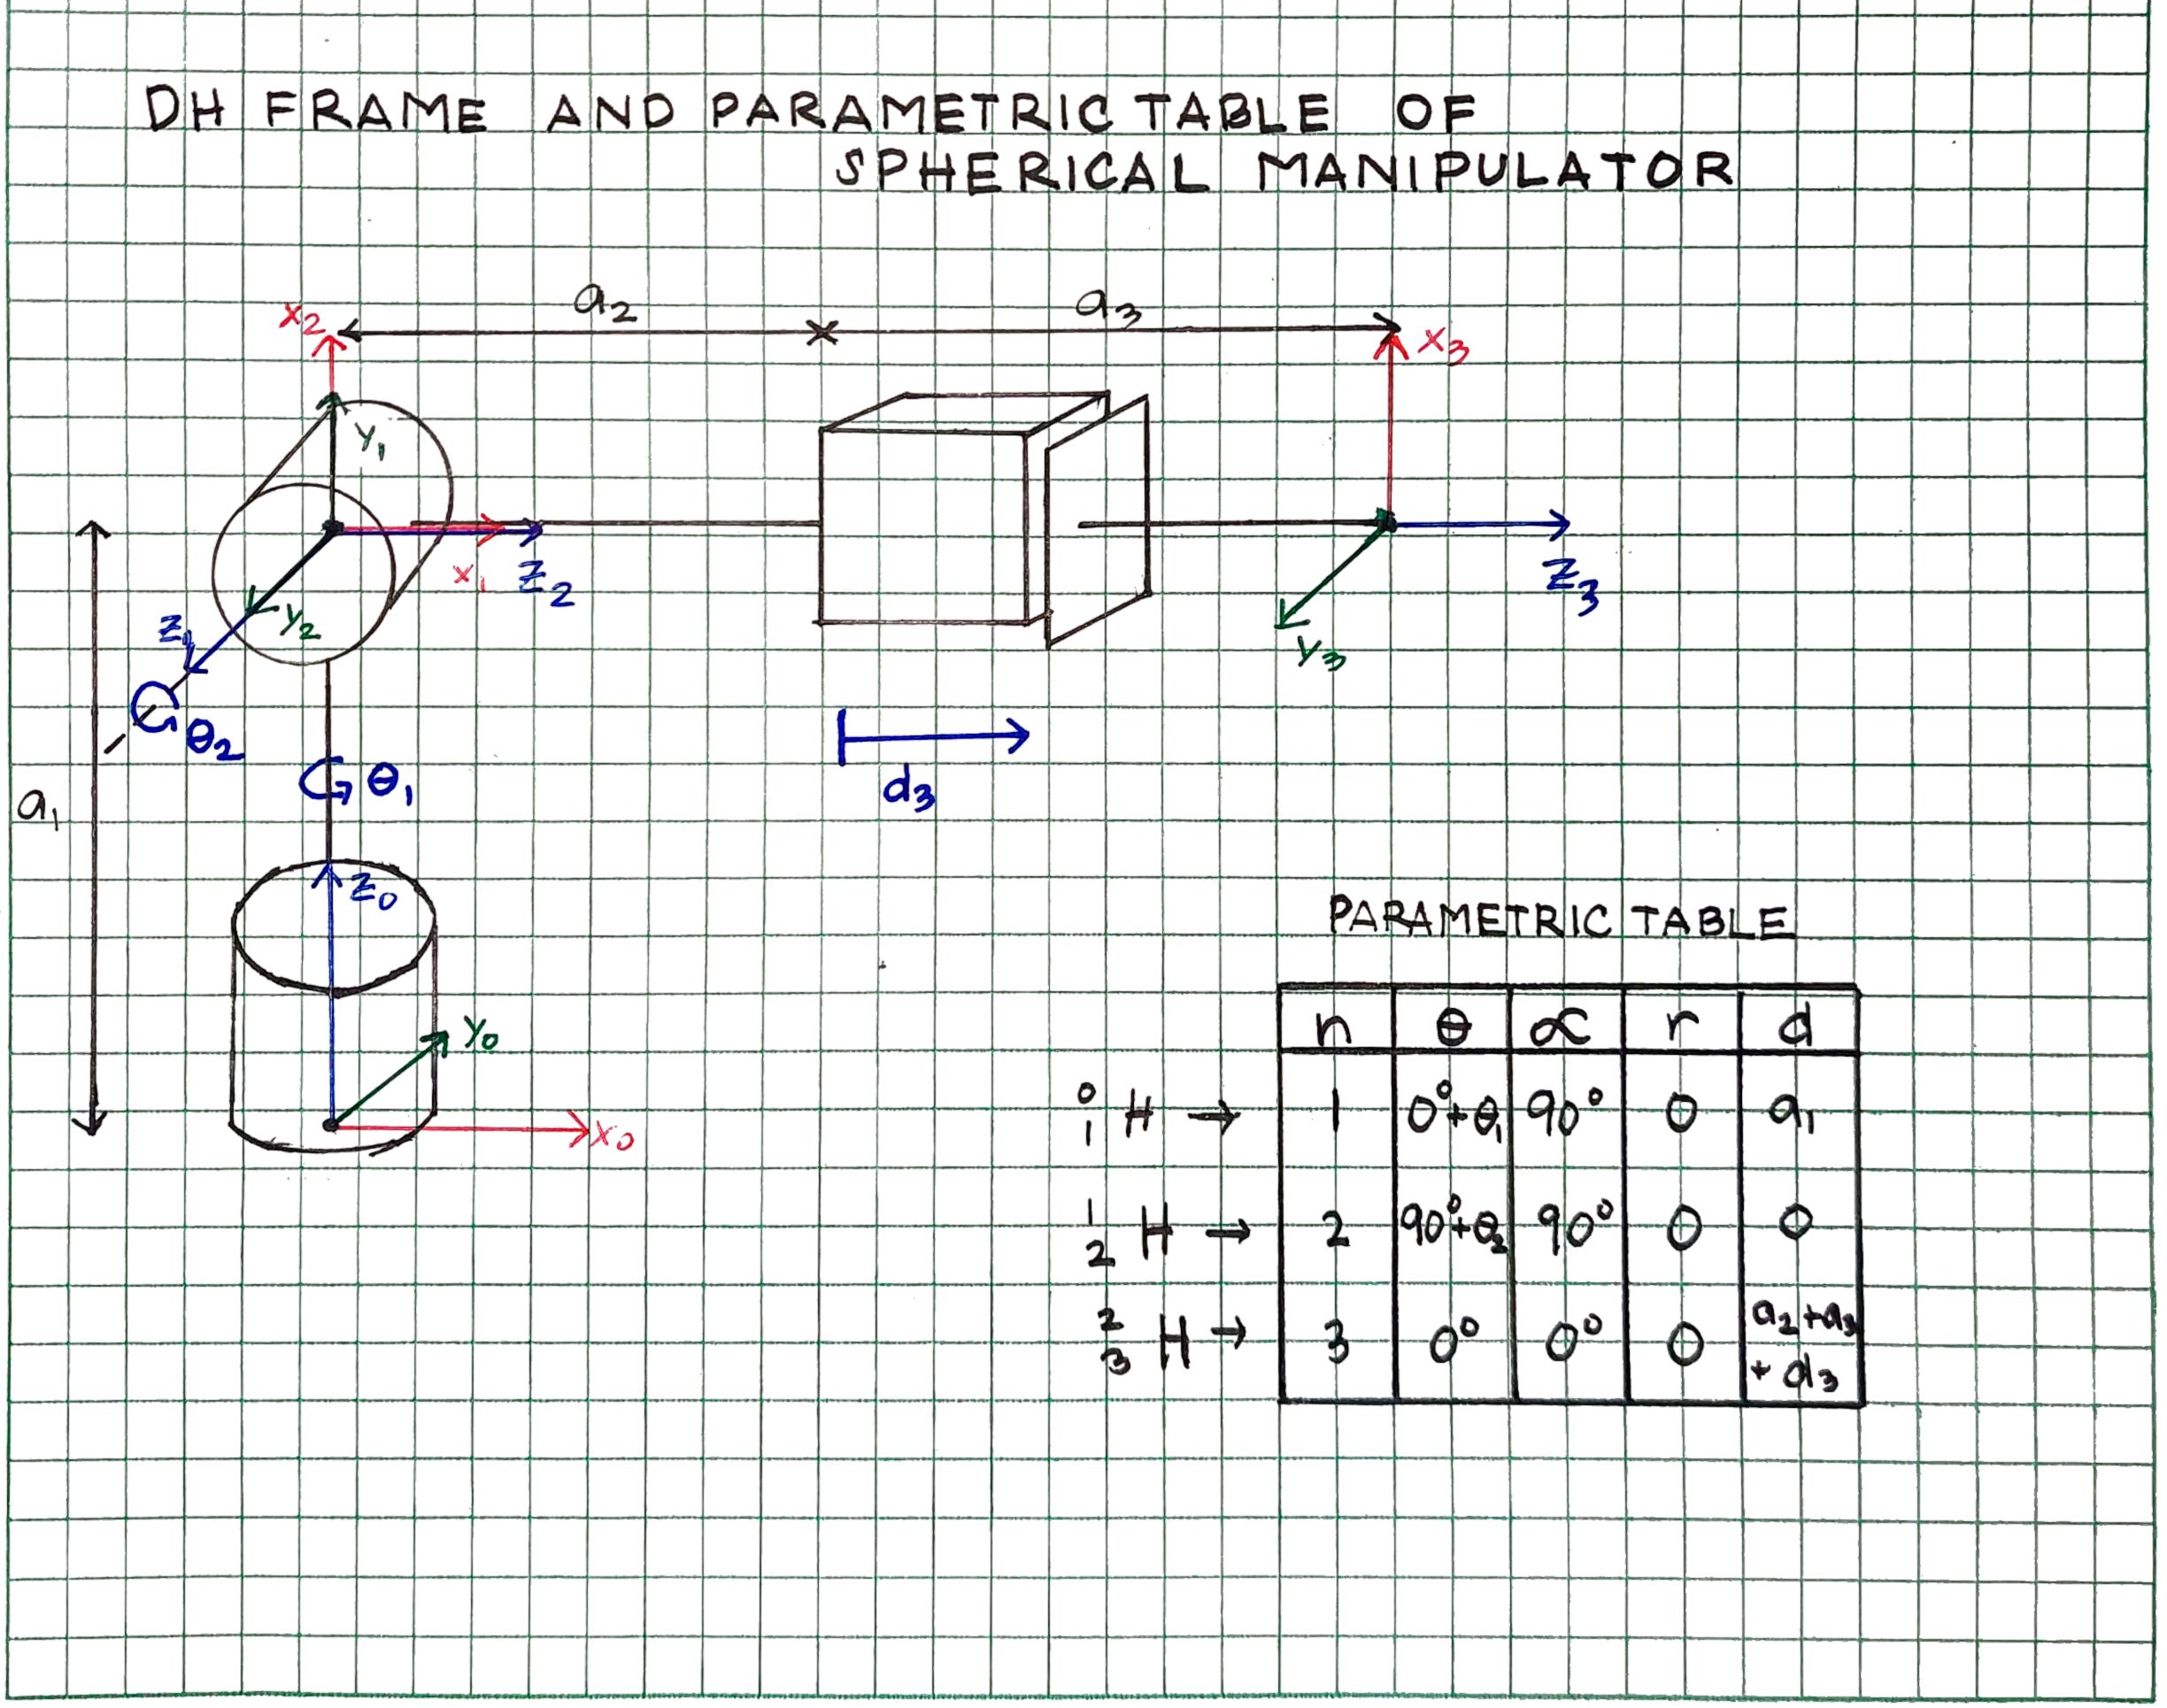 DH FRAME AND PARAMETRIC TABLE OF
SPHERICAL MANIPULATOR
a₂
a₃
x₂
x₃
y₁
x₁
z₂
y₂
z₁
z₃
y₃
θ₂
θ₁
d₃
a₁
z₀
y₀
x₀
PARAMETRIC TABLE
n θ ∝ r d
⁰₁H → 1 0°+θ₁ 90° 0 a₁
¹₂H → 2 90°+θ₂ 90° 0 0
²₃H → 3 0° 0° 0 a₂+a₃
+ d₃